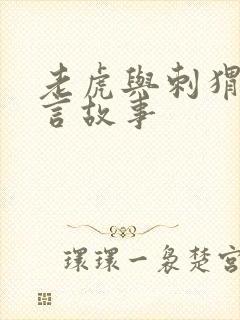 老虎與刺猬
言故事
環環一裊楚宮